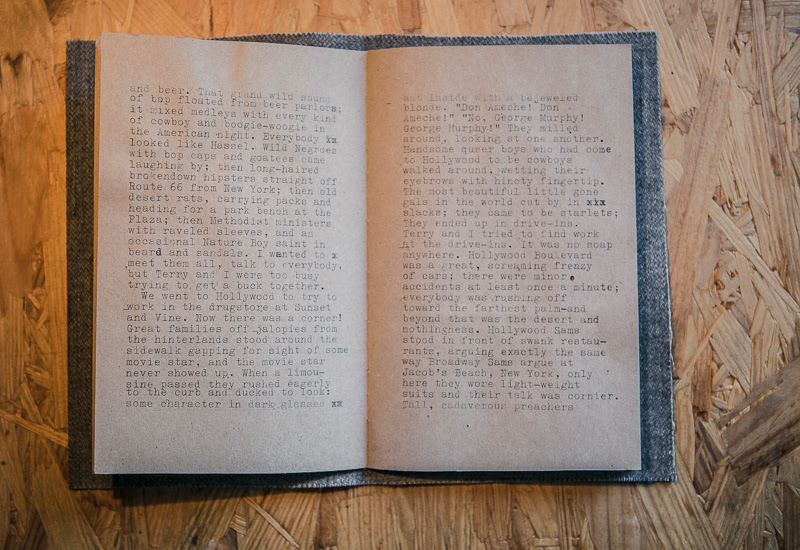 and beer. That grand wild sound
of bop floated from beer parlors;
it mixed medleys with every kind
of cowboy and boogie-woogie in
the American night. Everybody xx
looked like Hassel. Wild Negroes
with bop caps and goatees came
laughing by; then long-haired
brokendown hipsters straight off
Route 66 from New York; then old
desert rats, carrying packs and
heading for a park bench at the
Plaza; then Methodist ministers
with raveled sleeves, and an
occasional Nature Boy saint in
beard and sandals. I wanted to x
meet them all, talk to everybody,
but Terry and I were too busy
trying to get a buck together.
We went to Hollywood to try to
work in the drugstore at Sunset
and Vine. Now there was a corner!
Great families off jalopies from
the hinterlands stood around the
sidewalk gapping for sight of some
movie star, and the movie star
never showed up. When a limou-
sine passed they rushed eagerly
to the curb and ducked to look:
some character in dark glasses xx
sat inside with a bejeweled
blonde. "Don Ameche! Don
Ameche!" "No, George Murphy!
George Murphy!" They milled
around, looking at one another.
Handsome queer boys who had come
to Hollywood to be cowboys
walked around, wetting their
eyebrows with hincty fingertip.
The most beautiful little gone
gals in the world cut by in xxx
slacks; they came to be starlets;
They ended up in drive-ins.
Terry and I tried to find work
at the drive-ins. It was no soap
anywhere. Hollywood Boulevard
was a great, screaming frenzy
of cars; there were minor
accidents at least once a minute;
everybody was rushing off
toward the farthest palm—and
beyond that was the desert and
nothingness. Hollywood Sams
stood in front of swank restau-
rants, arguing exactly the same
way Broadway Sams argue at
Jacob's Beach, New York, only
here they wore light-weight
suits and their talk was cornier.
Tall, cadaverous preachers